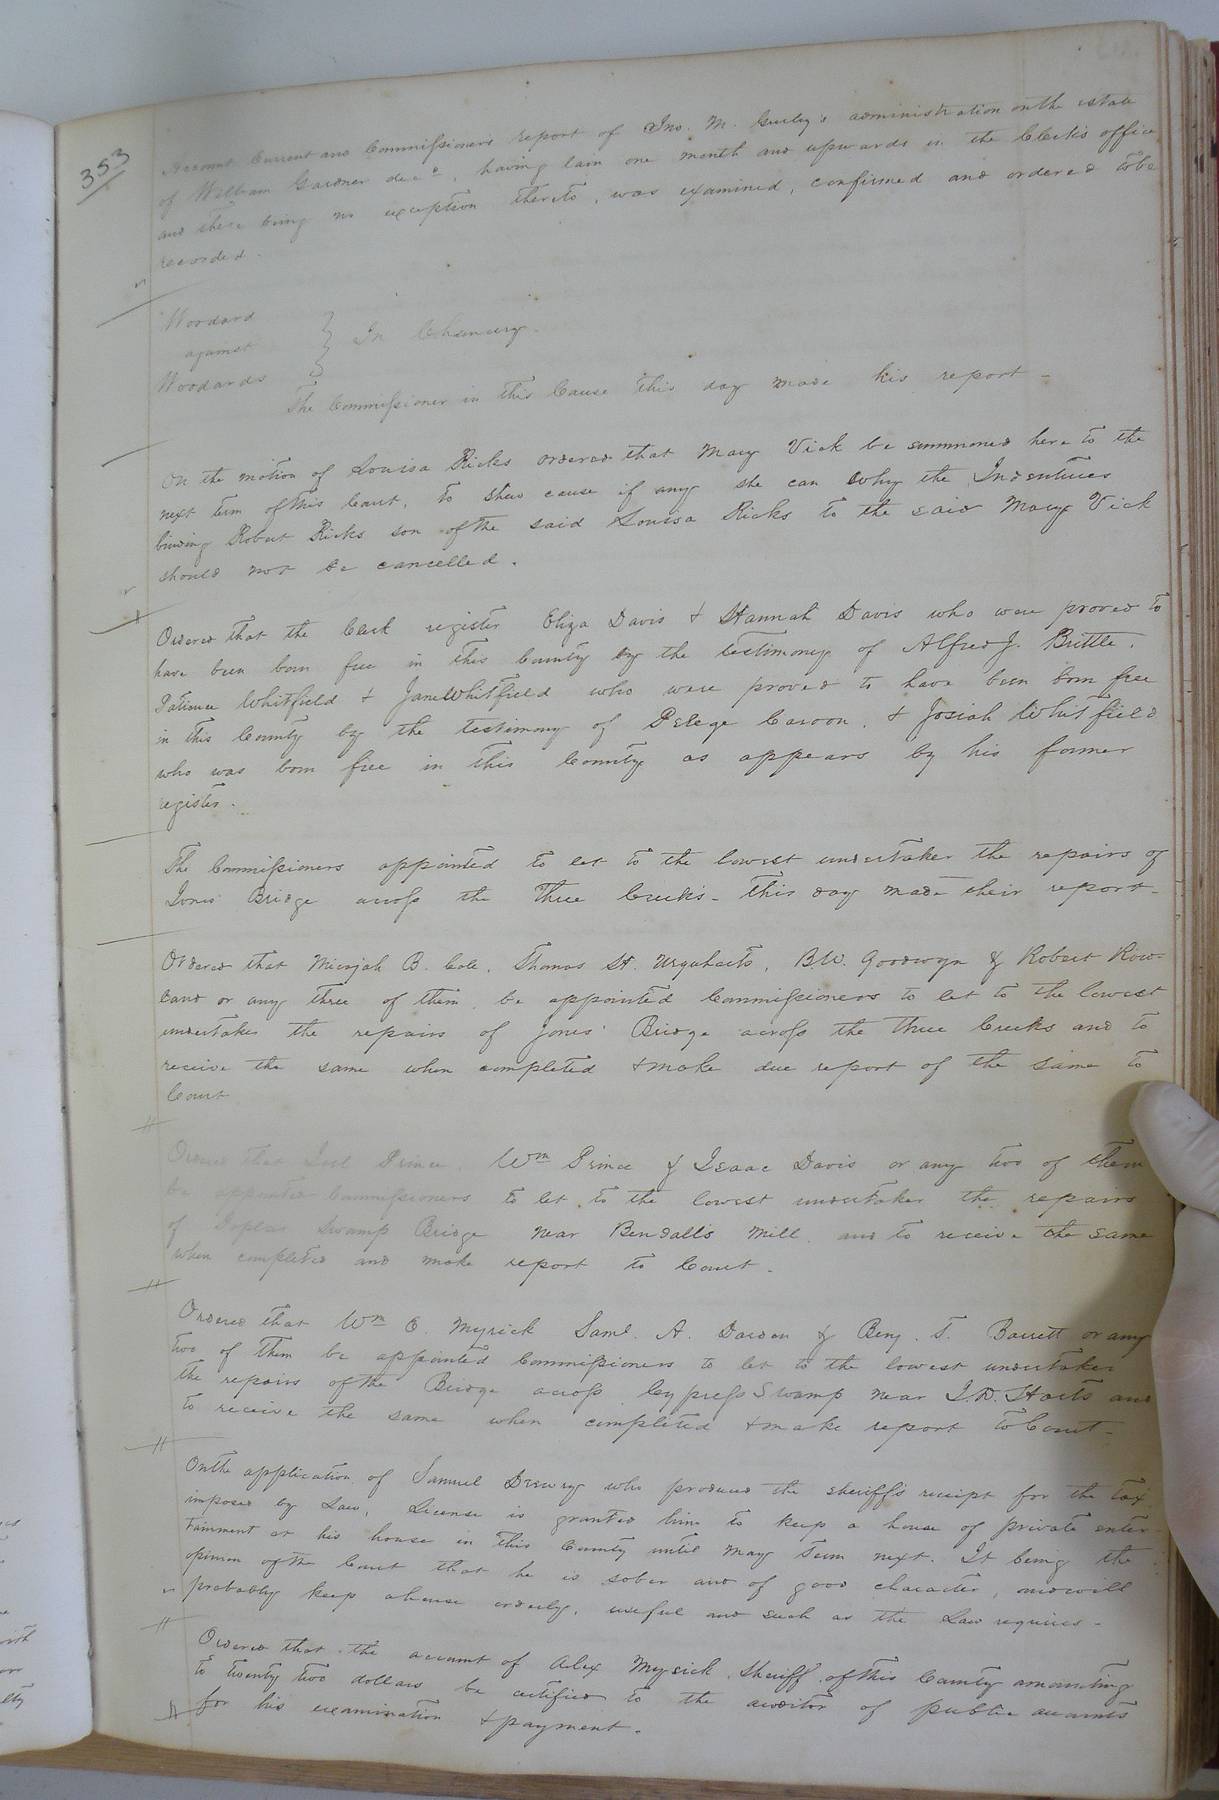 353
Account Current and Commissioners report of Jno. M. Gurley's administration on the estate
of William Gardner decd having lain one month and upwards in the Clerk's office
and there being no exception thereto, was examined, confirmed and ordered to be
recorded.
Woodard
against } In Chancery.
Woodards
The Commissioner in this Cause this day made his report -
On the motion of Louisa Ricks ordered that Mary Vick be summoned here to the
next term of this Court, to shew cause if any she can why the Indentures
binding Robert Ricks son of the said Louisa Ricks to the said Mary Vick
should not be cancelled.
Ordered that the Clerk register Eliza Davis & Hannah Davis who were proved to
have been born free in this County by the testimony of Alfred J. Brittle.
Patience Whitfield & Jane Whitfield who were proved to have been born free
in this County by the testimony of Pelege & Josiah Whitfield
who was born free in this County as appears by his former
register.
The Commissioners appointed to let to the lowest undertaker the repairs of
Jones' Bridge across the Three Creeks - this day made their report -
Ordered that Micajah B. Cole, Thomas H. Urquharts, B.W. Goodwyn & Robert Row=
land or any three of them be appointed Commissioners to let to the lowest
undertaker the repairs of Jones' Bridge across the three Creeks and to
receive the same when completed & make due report of the same to
Court
Ordered that Joel Prince, Wm Prince & Isaac Davis or any two of them
be appointed Commissioners to let to the lowest undertaker the repairs
of Poplar Swamp Bridge near Bendall's Mill and to receive the same
when completed and make report to Court -
Ordered that Wm E. Myrick Saml. A. Darden & Benj. T. Barrett or any
two of them be appointed Commissioners to let to the lowest undertaker
the repairs of the Bridge across Cypress Swamp near J.D. and
to receive the same when completed & make report to Court -
On the application of Samuel Drewry who produced the sheriff's receipt for the tax
imposed by Law, License is granted him to keep a house of private enter-
tainment at his house in this County until May Term next. It being the
opinion of the Court that he is sober and of good character, and will
probably keep a house orderly, useful and such as the Law requires -
Ordered that the account of Alex Myrick Sheriff of this County amounting
to twenty two dollars be certified to the auditor of public accounts
for his examination & payment.